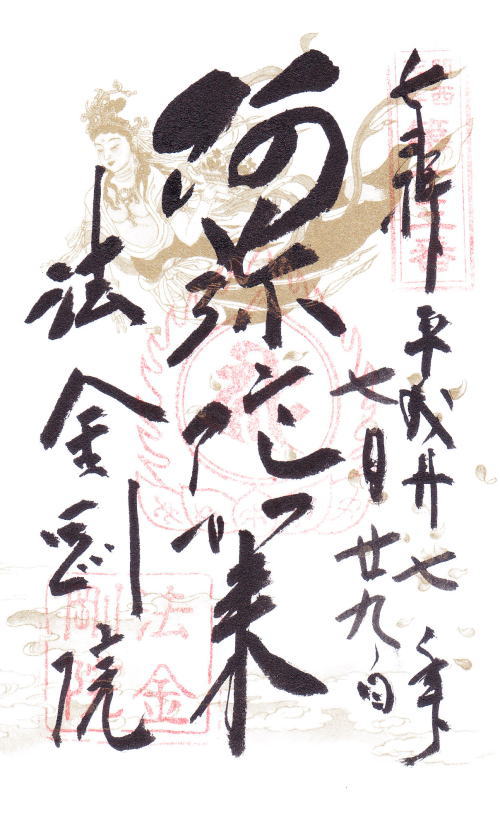 奉拝 平成廿七年
七月廿九日
阿弥陀如来
法金剛院
法金
剛院